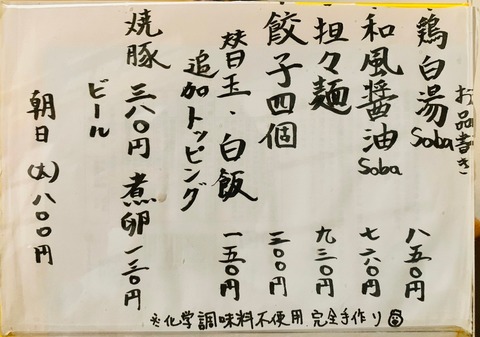 お品書き
鶏白湯Soba 八五〇円
和風醤油Soba 七六〇円
担々麺 九三〇円
餃子四個 三〇〇円
替玉・白飯 一五〇円
追加トッピング
焼豚 三八〇円 煮卵 一三〇円
ビール
朝日(大) 八〇〇円
※化学調味料不使用 完全手作り